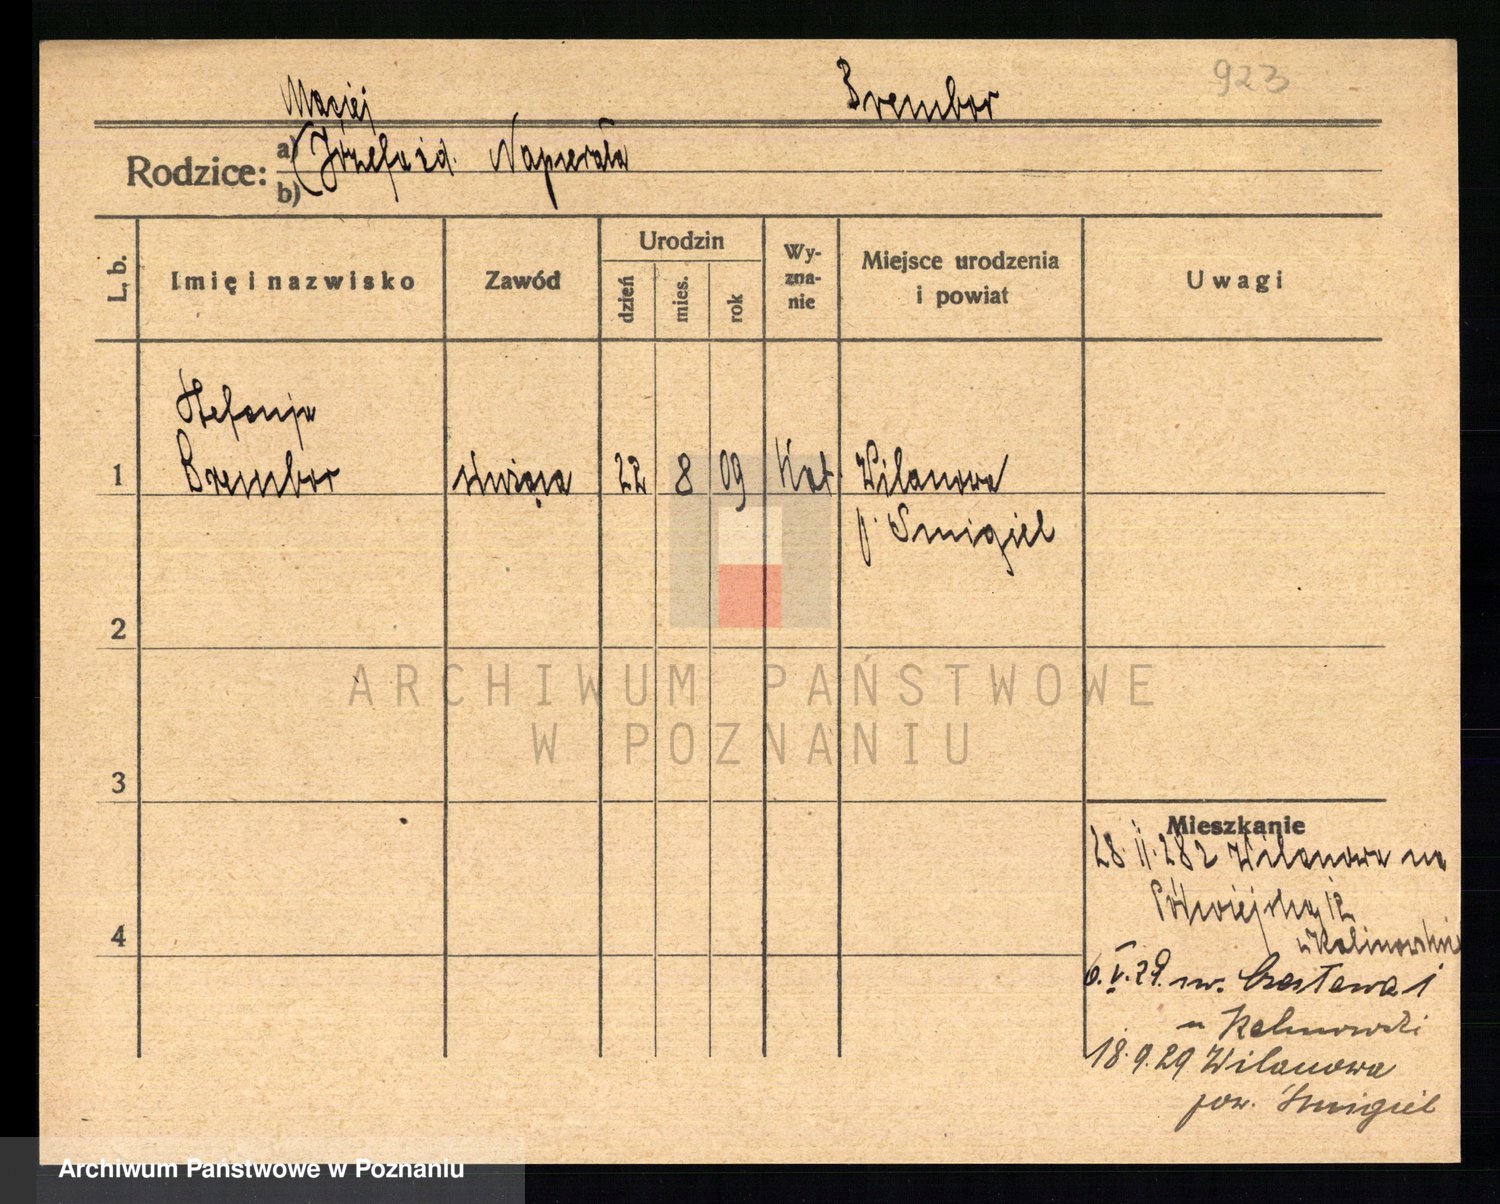 923
Maciej Brembor
Rodzice: a) (Józefa zd. Napierała
b)
L. b. Imię i nazwisko Zawód Urodzin dzień mies. rok Wy-zna-nie Miejsce urodzenia i powiat Uwagi
Stefanja
1 Brembor służąca 22 8 09 Kat. Wilanowa
p. Śmigiel
2
ARCHIWUM PAŃSTWOWE
W POZNANIU
3
Mieszkanie
28.II.28 z Wilanowa na
Półwiejską 12
4
u Kalinowskie
6.V.29. św. Czesława 1
u Kalinowski
18.9.29 Wilanowa
pow. Śmigiel
Archiwum Państwowe w Poznaniu